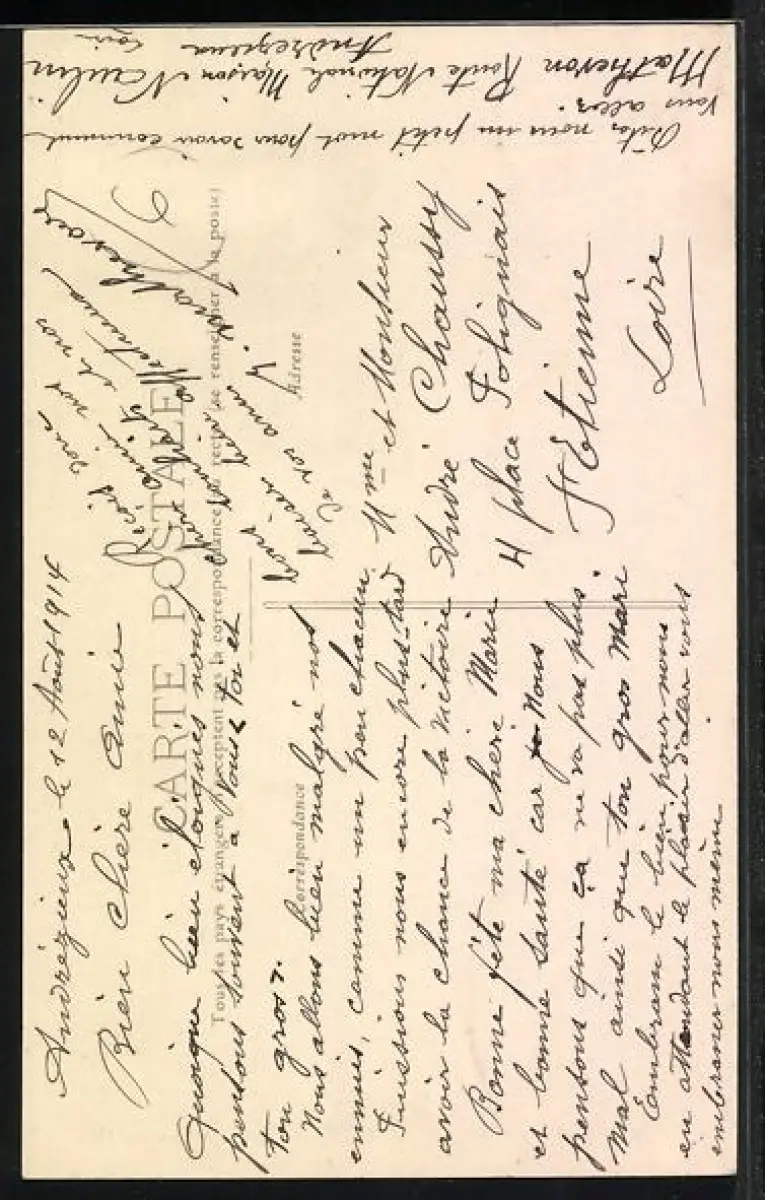 CARTE POSTALE
Tous les pays étrangers n'acceptent pas la correspondance au recto (se renseigner à la poste)
Correspondance
Adresse
Andrézieux le 12 Août 1914
Bien chère Amie
Quoique bien éloignés nous
pensons souvent à vous toi et
ton gros.
Nous allons bien malgré nos
ennuis, comme un peu chacun.
Puissions nous encore plus tard
avoir la chance de la victoire
Bonne fête ma chère Marie
et bonne santé car nous
pensons que ça ne va pas plus
mal ainsi que ton gros Mari.
Embrasse le bien pour nous
en attendant le plaisir d'aller vous
embrasser nous même
Reçois donc
chère amie
nos
de nos
bons baisers
de vos amis
M. Matheron
Mme et Monsieur
André Chaussy
4 place Polignais
St Etienne
Loire
Dites nous un petit mot pour savoir comment
vous allez.
Matheron Route National Maison Naulin
Andrézieux
Loire